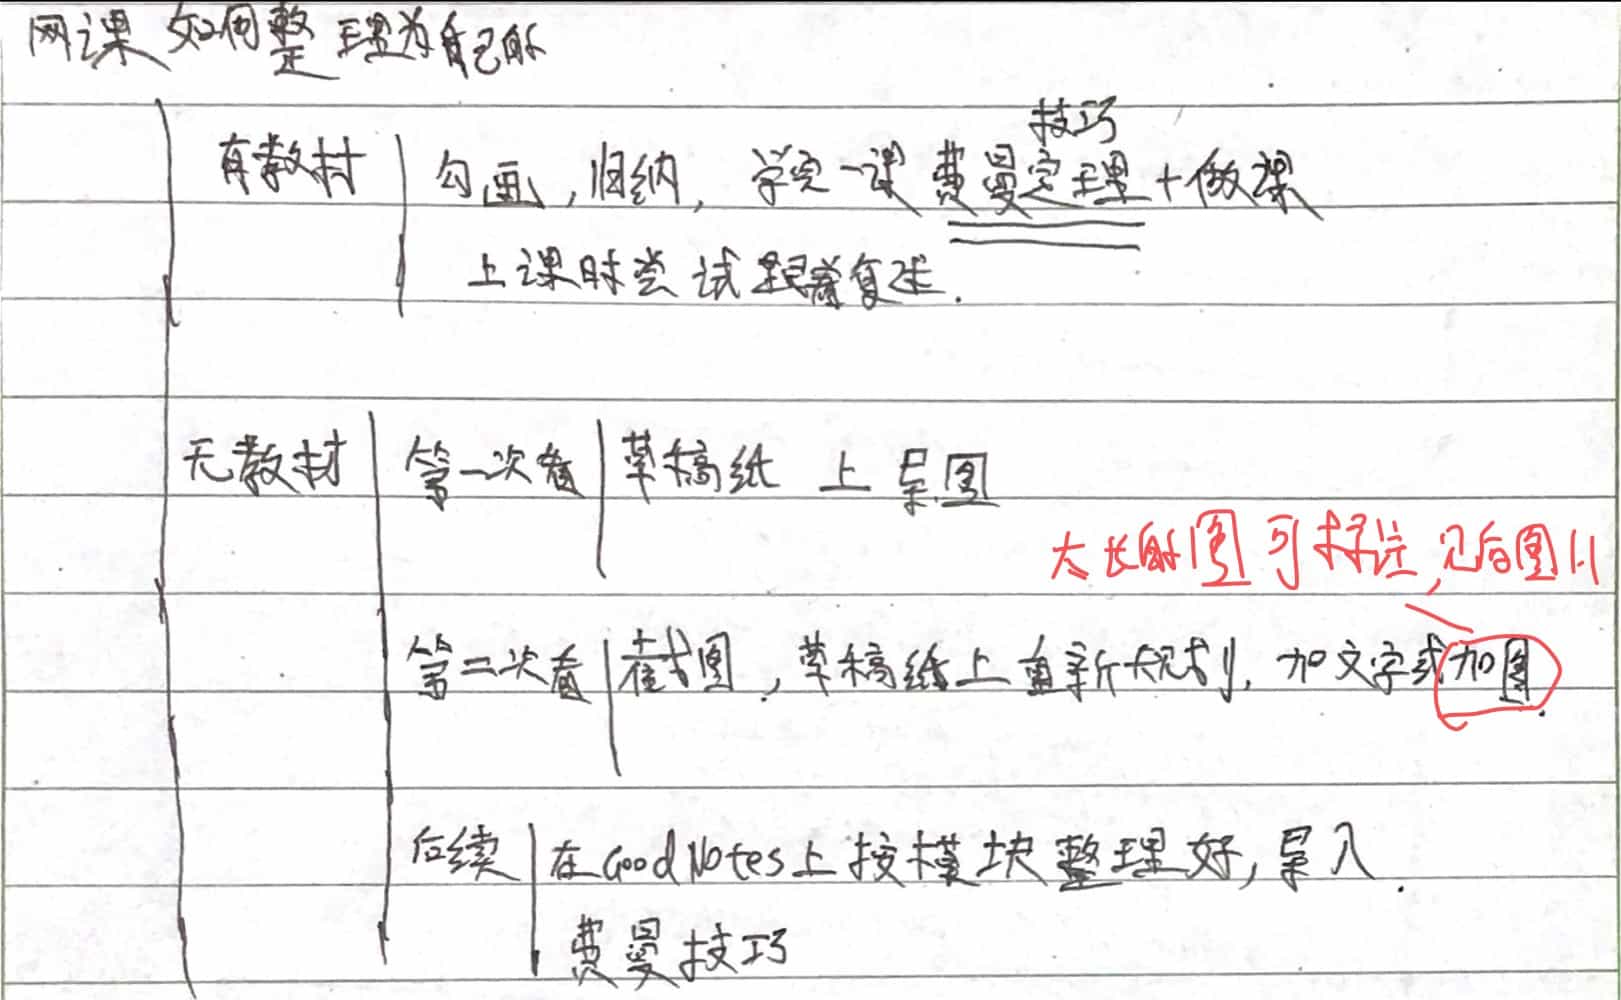 网课如何整理为自己的
技巧
有教材 勾画,归纳,学完一课 费曼定理+做课
上课时尝试跟着复述.
无教材 第一次看 草稿纸 上 呈图
太长的图可标注,见后图1.1
第二次看 截图,草稿纸上重新规划,加文字或加图.
后续 在GoodNotes上按模块整理好,导入.
费曼技巧